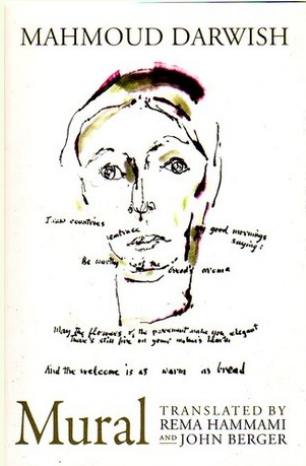 MAHMOUD DARWISH
I saw countries
embrace my good mornings
saying:
Be worthy of the bread's aroma
May the flowers of the pavement make you elegant
There's still fire in your mother's hearth
And the welcome is as warm as bread
Mural
TRANSLATED BY
REMA HAMMAMI
AND JOHN BERGER